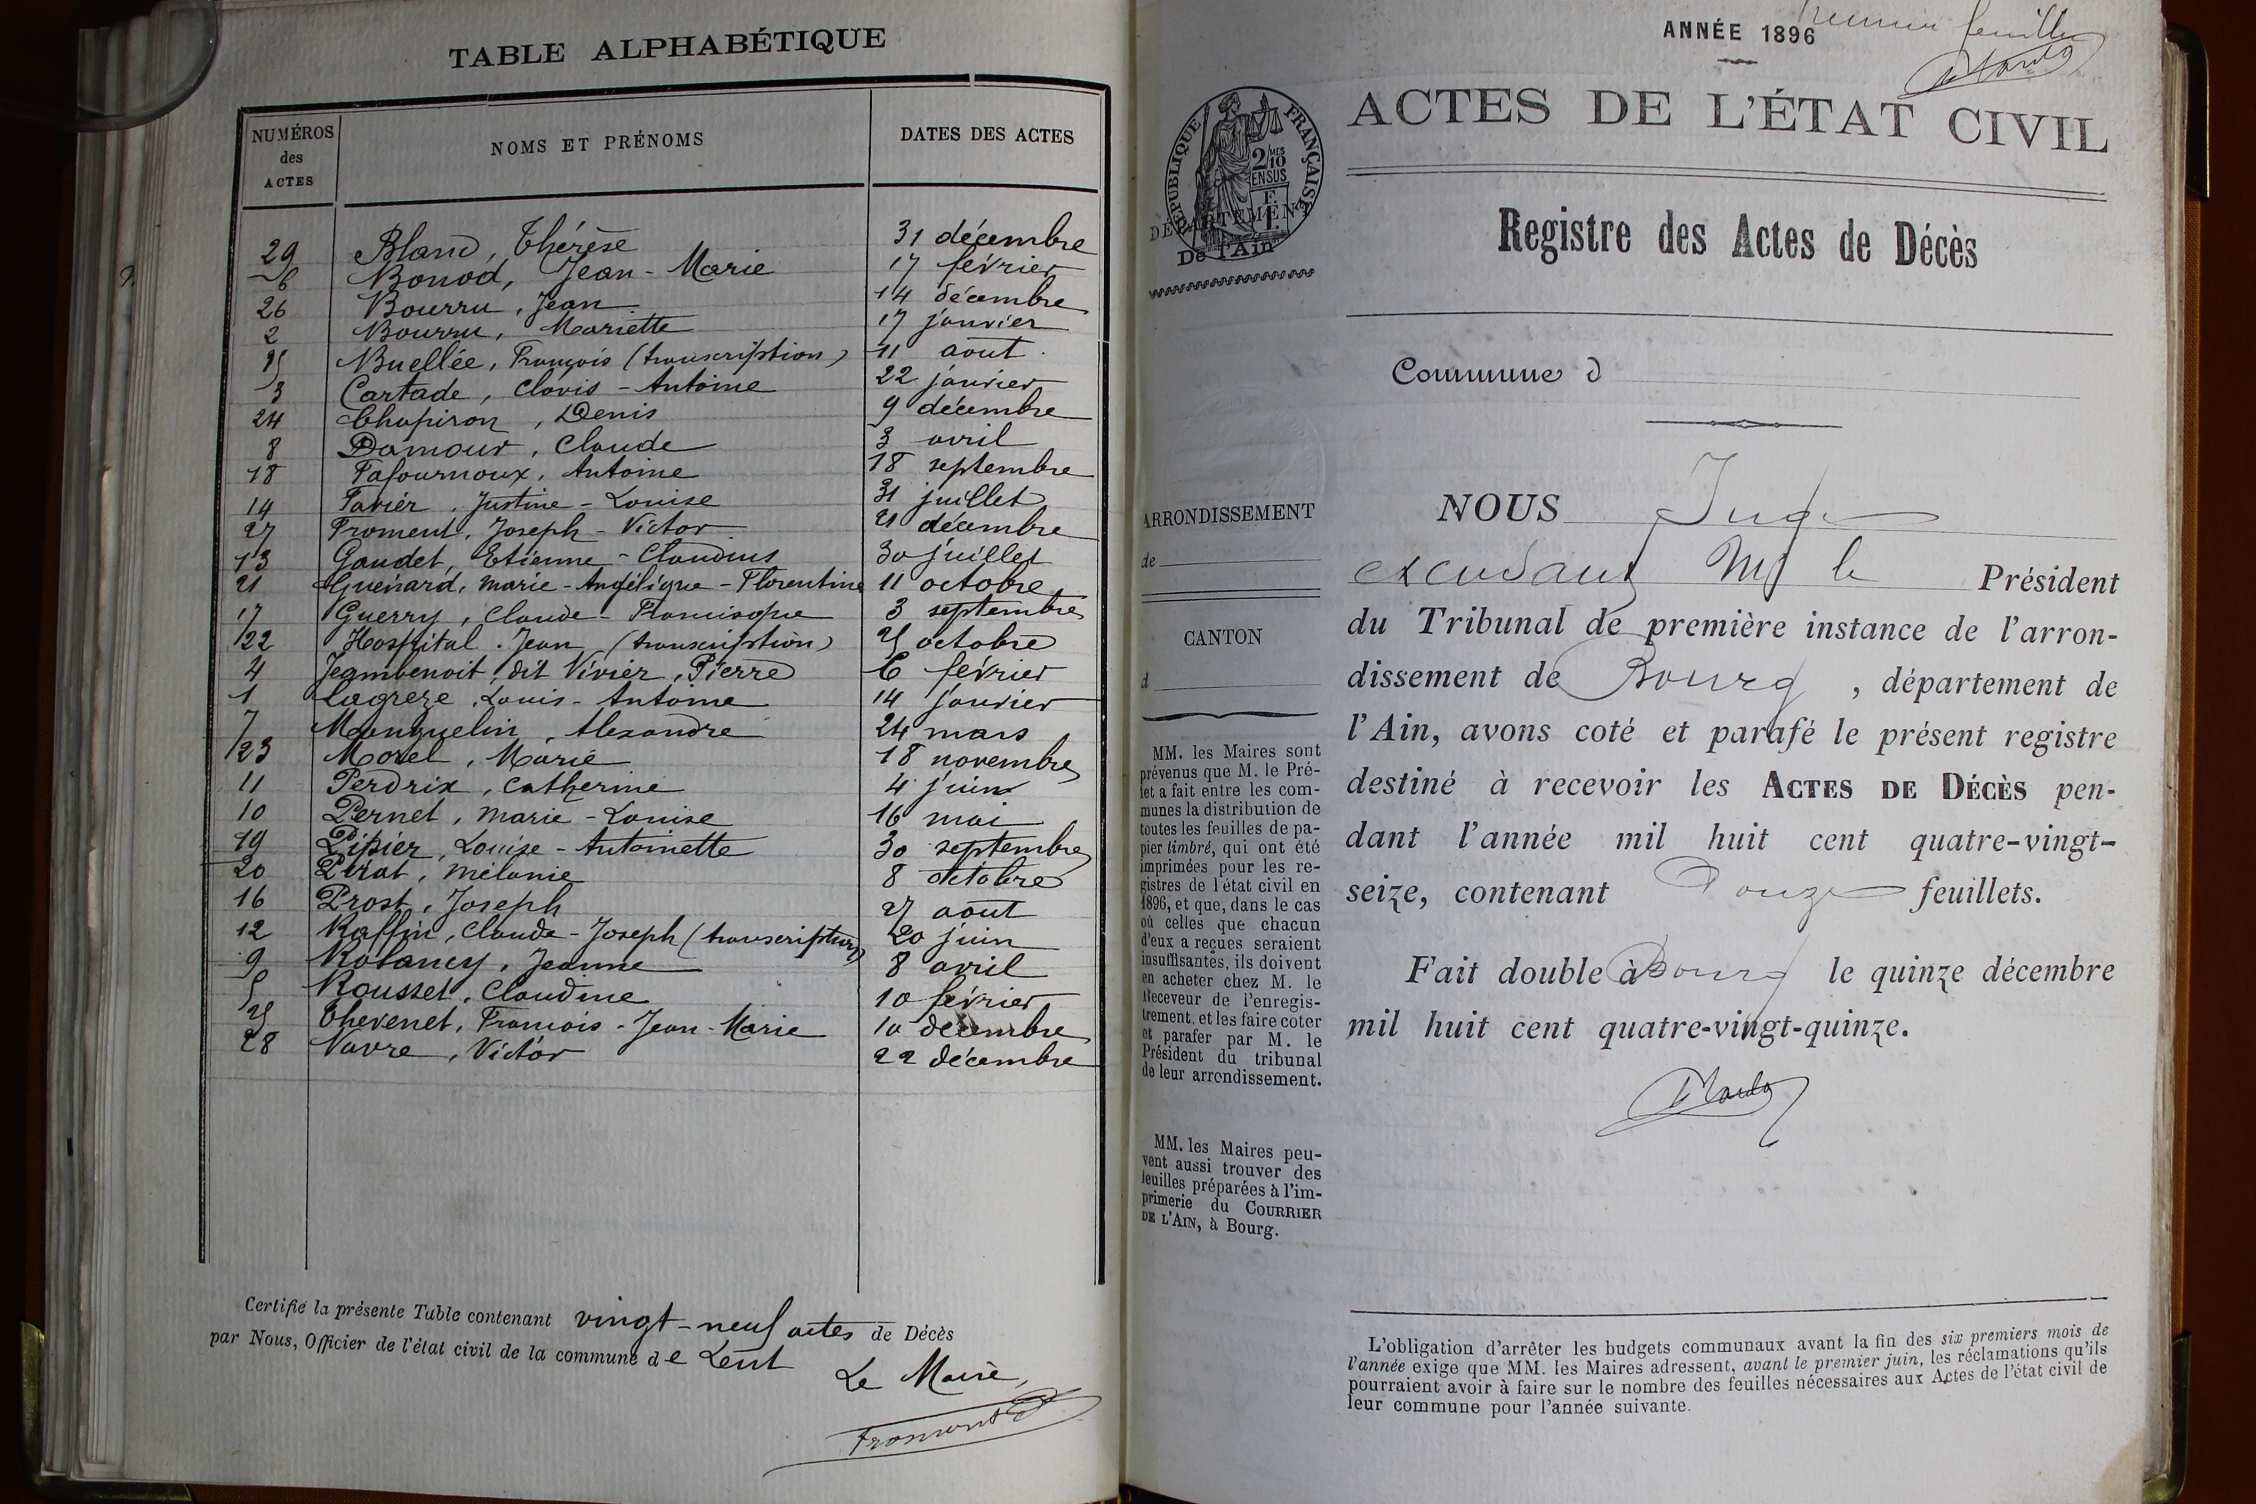 TABLE ALPHABÉTIQUE
NUMÉROS des ACTES
NOMS ET PRÉNOMS
DATES DES ACTES
29 Bland, Thérèse 31 décembre
6 Bonod, Jean-Marie 17 février
26 Bourru, Jean 14 décembre
2 Bourru, Mariette 17 janvier
15 Buellée, François (transcription) 11 août
3 Cartade, Clovis-Antoine 22 janvier
24 Chapiron, Denis 9 décembre
8 Damour, Claude 3 avril
18 Fafournoux, Antoine 18 septembre
14 Favier, Justine-Louise 31 juillet
27 Froment, Joseph-Victor 21 décembre
13 Gaudet, Etienne-Claudius 30 juillet
21 Guenard, Marie-Angélique-Florentine 11 octobre
17 Guerry, Claude-Francisque 3 septembre
22 Hospital, Jean (transcription) 25 octobre
4 Jeambenoit, dit Vivier, Pierre 6 février
1 Lagreze, Louis-Antoine 14 janvier
7 Manguelin, Alexandre 24 mars
23 Morel, Marie 18 novembre
11 Perdrix, Catherine 4 juin
10 Pernet, Marie-Louise 16 mai
19 Pipier, Louise-Antoinette 30 septembre
20 Pirat, Mélanie 8 octobre
16 Prost, Joseph 27 août
12 Raffin, Claude-Joseph (transcription) 20 juin
9 Rolancy, Jeanne 8 avril
5 Rousset, Claudine 10 février
25 Thevenet, François-Jean-Marie 10 décembre
28 Vavre, Victor 22 décembre
Certifié la présente Table contenant vingt-neuf actes de Décès
par Nous, Officier de l'état civil de la commune de Lent
Le Maire,
Froment
premier feuillet
ANNÉE 1896
ACTES DE L'ÉTAT CIVIL
RÉPUBLIQUE FRANÇAISE
2/10 MES EN SUS
DÉPARTEMENT
De l'Ain
Registre des Actes de Décès
Commune d
ARRONDISSEMENT
de
CANTON
d
MM. les Maires sont
prévenus que M. le Pré-
fet a fait entre les com-
munes la distribution de
toutes les feuilles de pa-
pier timbré, qui ont été
imprimées pour les re-
gistres de l'état civil en
1896, et que, dans le cas
où celles que chacun
d'eux a reçues seraient
insuffisantes, ils doivent
en acheter chez M. le
Receveur de l'enregis-
trement, et les faire coter
et parafer par M. le
Président du tribunal
de leur arrondissement.
MM. les Maires peu-
vent aussi trouver des
feuilles préparées à l'im-
primerie du COURRIER
DE L'AIN, à Bourg.
NOUS Juge
excusant M. le Président
du Tribunal de première instance de l'arron-
dissement de Bourg, département de
l'Ain, avons coté et parafé le présent registre
destiné à recevoir les ACTES DE DÉCÈS pen-
dant l'année mil huit cent quatre-vingt-
seize, contenant Douze feuillets.
Fait double à Bourg le quinze décembre
mil huit cent quatre-vingt-quinze.
L'obligation d'arrêter les budgets communaux avant la fin des six premiers mois de
l'année exige que MM. les Maires adressent, avant le premier juin, les réclamations qu'ils
pourraient avoir à faire sur le nombre des feuilles nécessaires aux Actes de l'état civil de
leur commune pour l'année suivante.